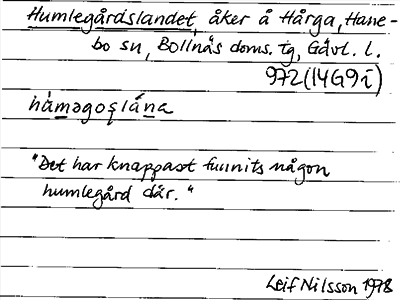 Humlegårdslandet, åker å Hårga, Hane-
bo sn, Bollnäs doms. tg, Gävl. l.
972 (14G9i)
hàməgoşlána
"Det har knappast funnits någon
humlegård där."
Leif Nilsson 1978